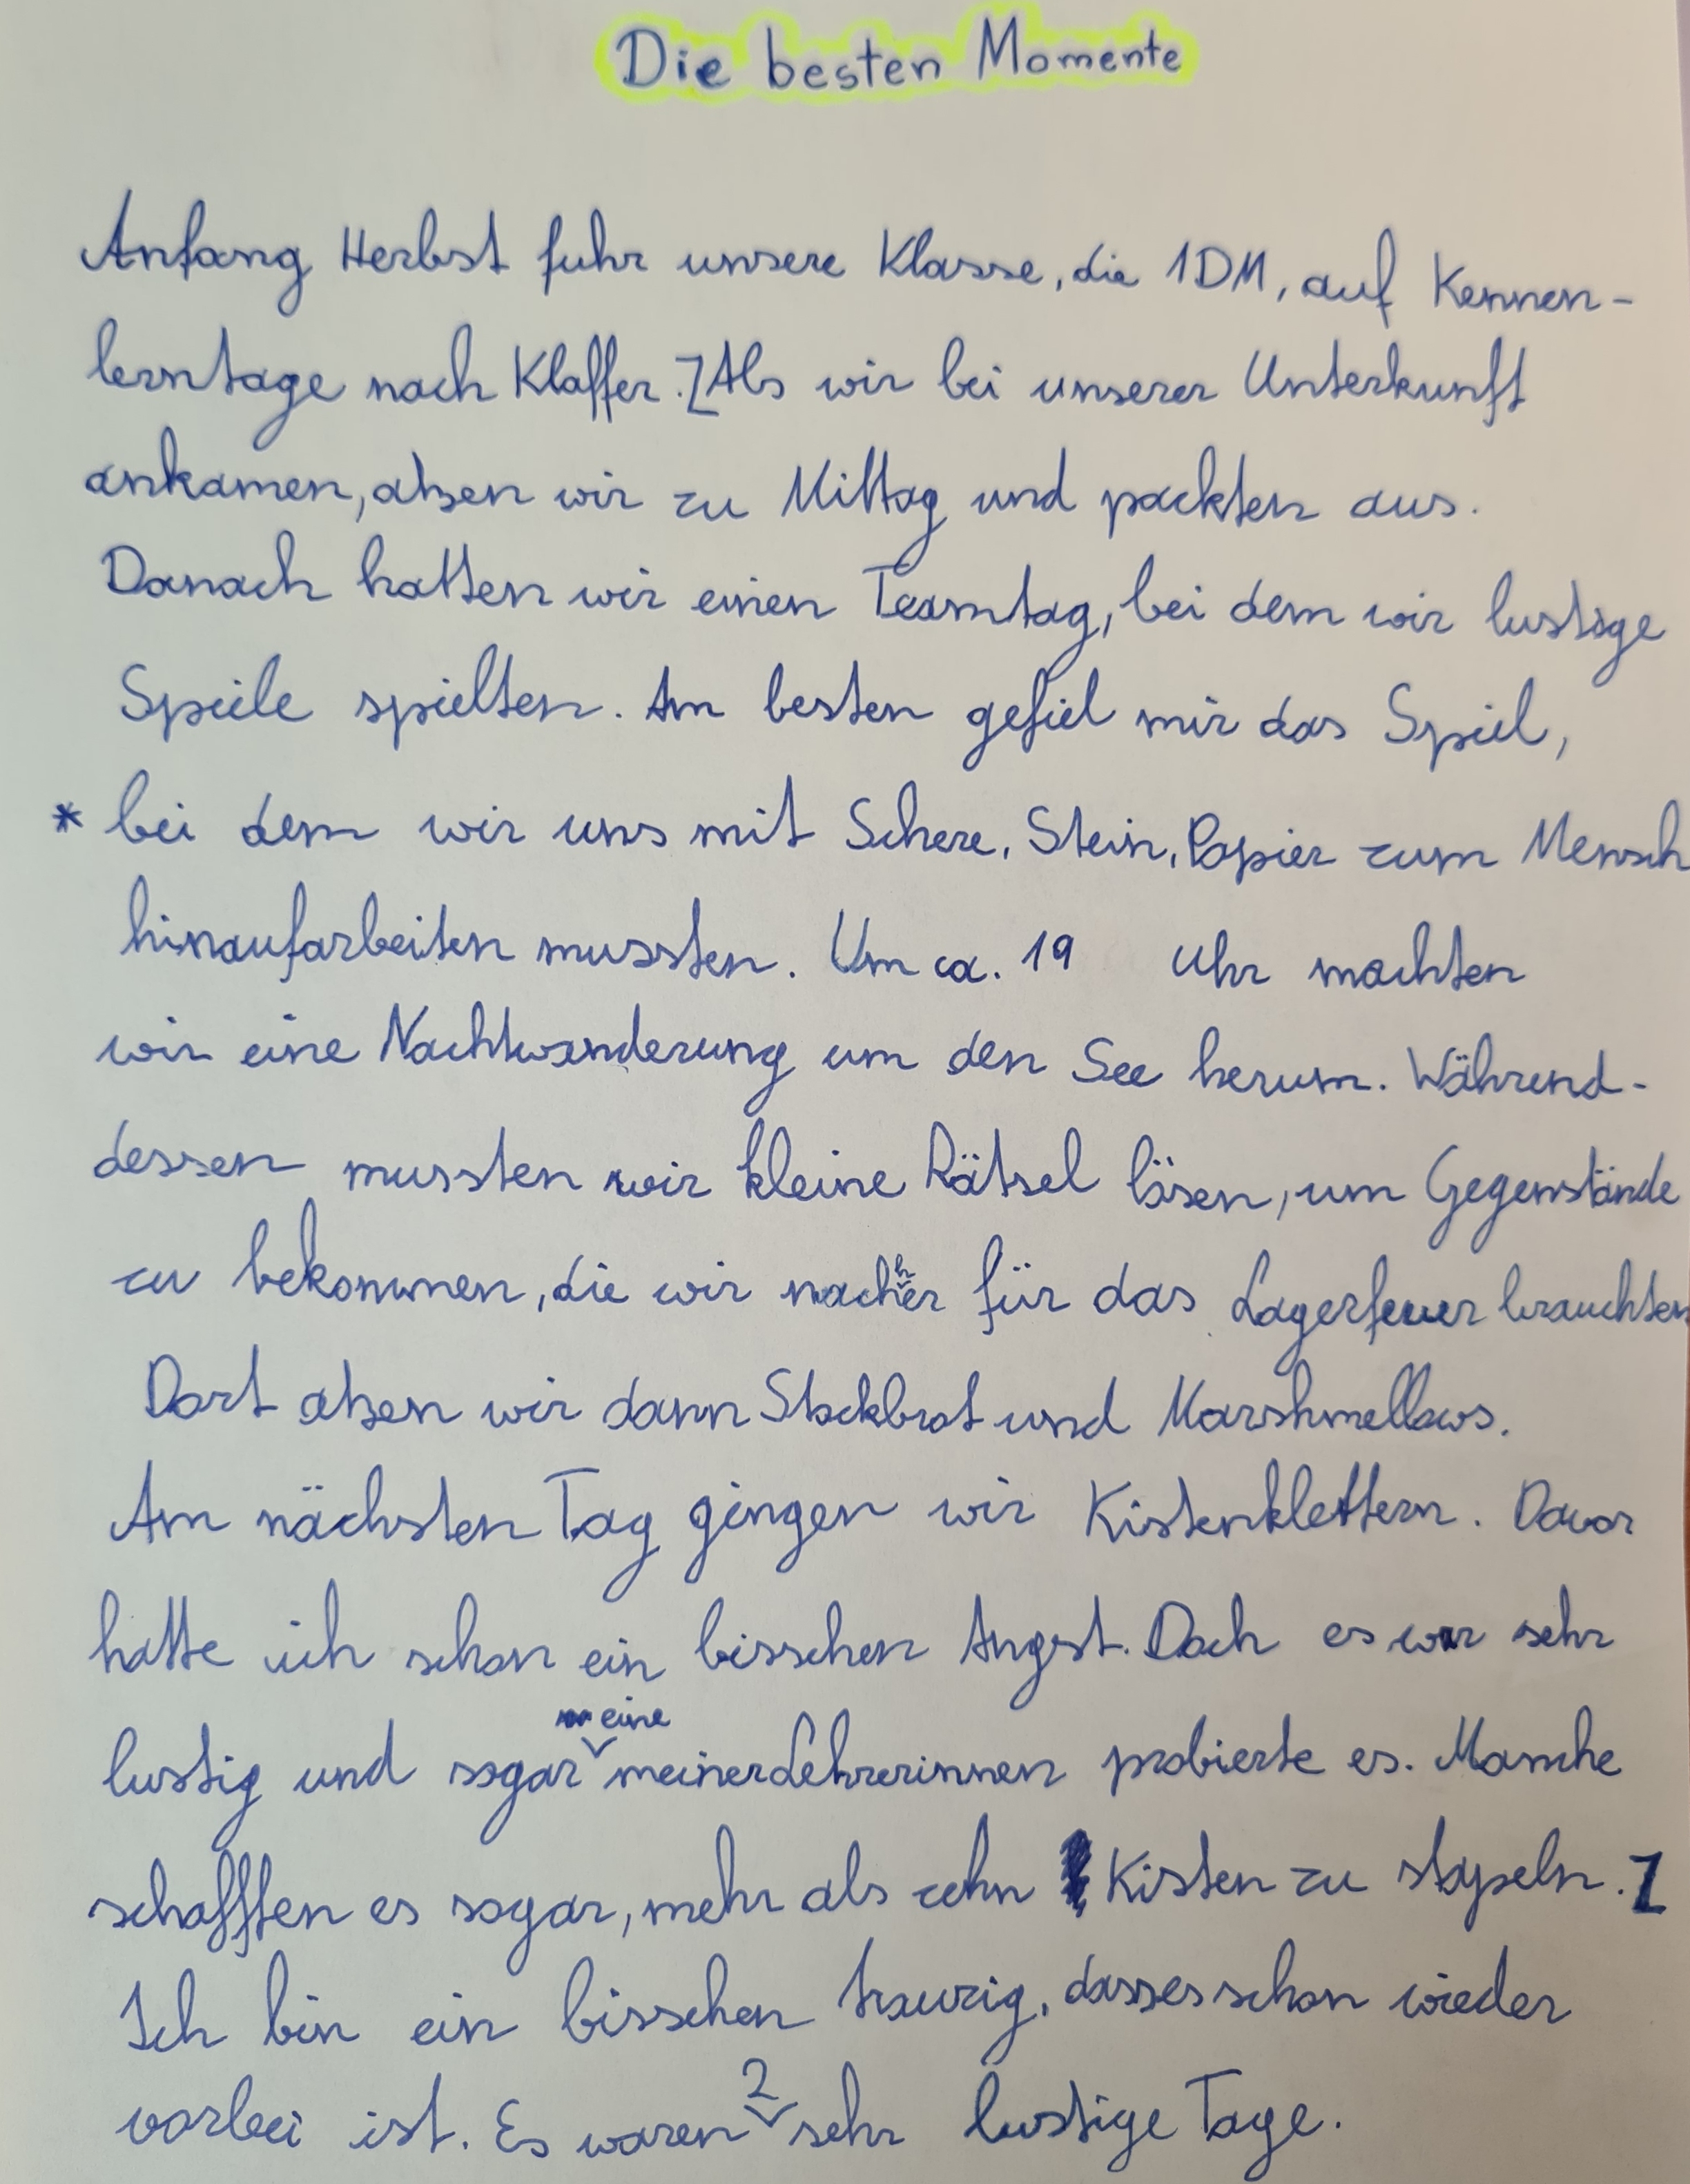 Die besten Momente
Anfang Herbst fuhr unsere Klasse, die 1DM, auf Kennen-
lerntage nach Klaffer. Als wir bei unserer Unterkunft
ankamen, aßen wir zu Mittag und packten aus.
Danach hatten wir einen Teamtag, bei dem wir lustige
Spiele spielten. Am besten gefiel mir das Spiel,
* bei dem wir uns mit Schere, Stein, Papier zum Mensch
hinaufarbeiten mussten. Um ca. 19 Uhr machten
wir eine Nachtwanderung um den See herum. Während-
dessen mussten wir kleine Rätsel lösen, um Gegenstände
zu bekommen, die wir nachher für das Lagerfeuer brauchten
Dort aßen wir dann Stockbrot und Marshmellows.
Am nächsten Tag gingen wir Kistenklettern. Davor
hatte ich schon ein bisschen Angst. Doch es war sehr
lustig und sogar eine meiner Lehrerinnen probierte es. Manche
schafften es sogar, mehr als zehn Kisten zu stapeln.
Ich bin ein bisschen traurig, dass es schon wieder
vorbei ist. Es waren 2 sehr lustige Tage.